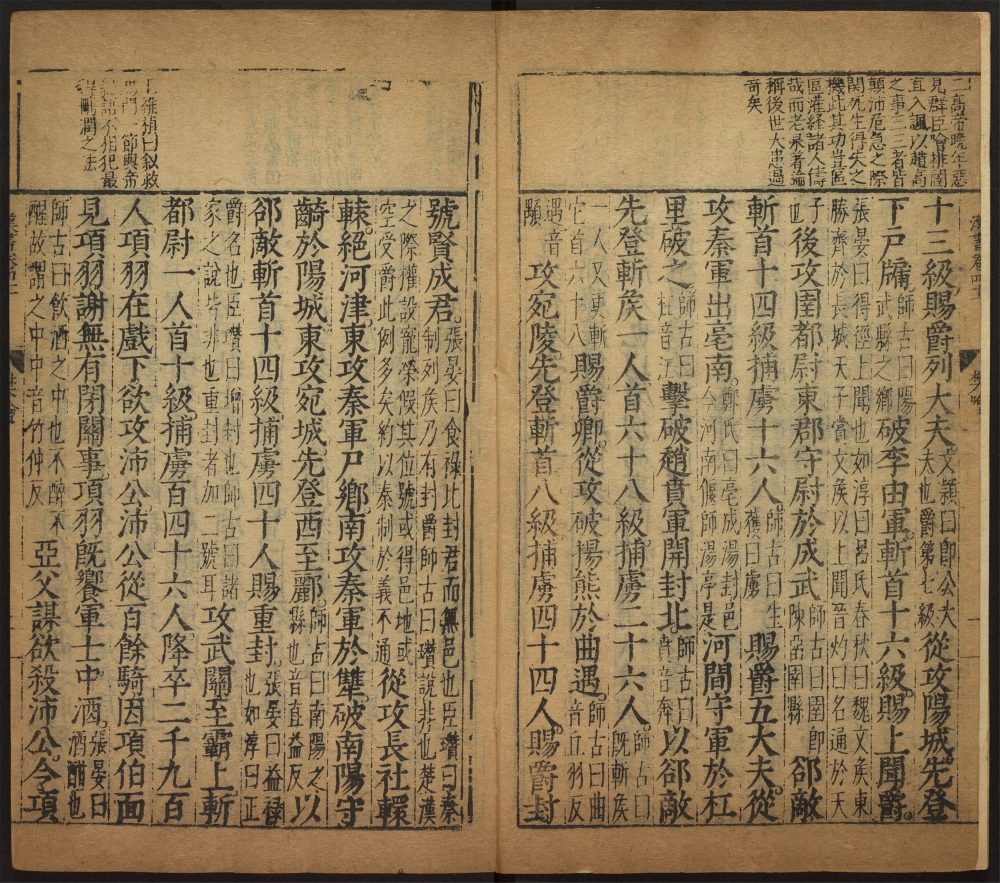 二高帝晚年惡
見群臣噲排闥
直入諷以趙高
之事三者皆
顛沛危急之際
関死生得失之
機此其功豈區
區灌経諸人儔
哉而老泉者論
稱後世大患過
奇矣
漢書卷四十一
十三級賜爵列大夫文穎曰即公大夫也爵第七級從攻陽城先登
下戶牖師古曰陽武縣之鄉破李由軍斬首十六級賜上聞爵
張晏曰得徑上聞也如淳曰呂氏春秋曰魏文矦東勝齊於長城天子賞文矦以上聞晉灼曰名通於天
子也後攻圉都尉東郡守尉於成武師古曰圉即陳畱圉縣郤敵
斬首十四級捕虜十六人師古曰生獲曰虜賜爵五大夫從
攻秦軍出亳南鄭氏曰亳成湯封邑今河南偃師湯亭是河間守軍於杠
里破之師古曰杠音江擊破趙賁軍開封北師古曰賁音奔以郤敵
先登斬矦一人首六十八級捕虜二十六人師古曰既斬矦
一人又更斬它首六十八賜爵卿從攻破揚熊於曲遇師古曰曲音丘羽反
遇音顒攻宛陵先登斬首八級捕虜四十四人賜爵封
王維楨曰叙救
鴻門一節與帝
紀語不相犯最
得劘潤之法
號賢成君張晏曰食祿比封君而無邑也臣瓚曰秦制列矦乃有封爵師古曰瓚說非也楚漢
之際權設寵榮假其位號或得邑地或空受爵此例多矣約以秦制於義不通從攻長社轘
轅絕河津東攻秦軍尸鄉南攻秦軍於犫破南陽守
齮於陽城東攻宛城先登西至酈師古曰南陽之縣也音直益反以
郤敵斬首十四級捕虜四十人賜重封張晏曰益祿也如淳曰正
爵名也臣瓚曰增封也師古曰諸家之說皆非也重封者加二號耳攻武關至霸上斬
都尉一人首十級捕虜百四十六人降卒二千九百
人項羽在戲下欲攻沛公沛公從百餘騎因項伯面
見項羽謝無有閉關事項羽既饗軍士中酒張晏曰酒酣也
師古曰飲酒之中也不醉不醒故謂之中中音竹仲反亞父謀欲殺沛公令項